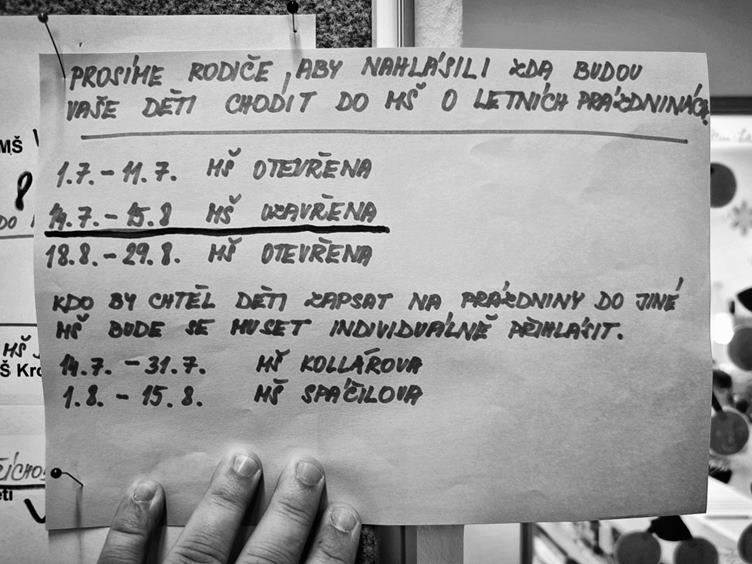 PROSÍME RODIČE, ABY NAHLÁSILI ZDA BUDOU
VAŠE DĚTI CHODIT DO MŠ O LETNÍCH PRÁZDNINÁCH
1.7. - 11.7. MŠ OTEVŘENA
14.7. - 15.8 MŠ UZAVŘENA
18.8. - 29.8. MŠ OTEVŘENA
KDO BY CHTĚL DĚTI ZAPSAT NA PRÁZDNINY DO JINÉ
MŠ BUDE SE MUSET INDIVIDUÁLNĚ PŘIHLÁSIT.
14.7. - 31.7. MŠ KOLLÁROVA
1.8. - 15.8. MŠ SPÁČILOVA
MŠ
DO
MŠ
Š Kro